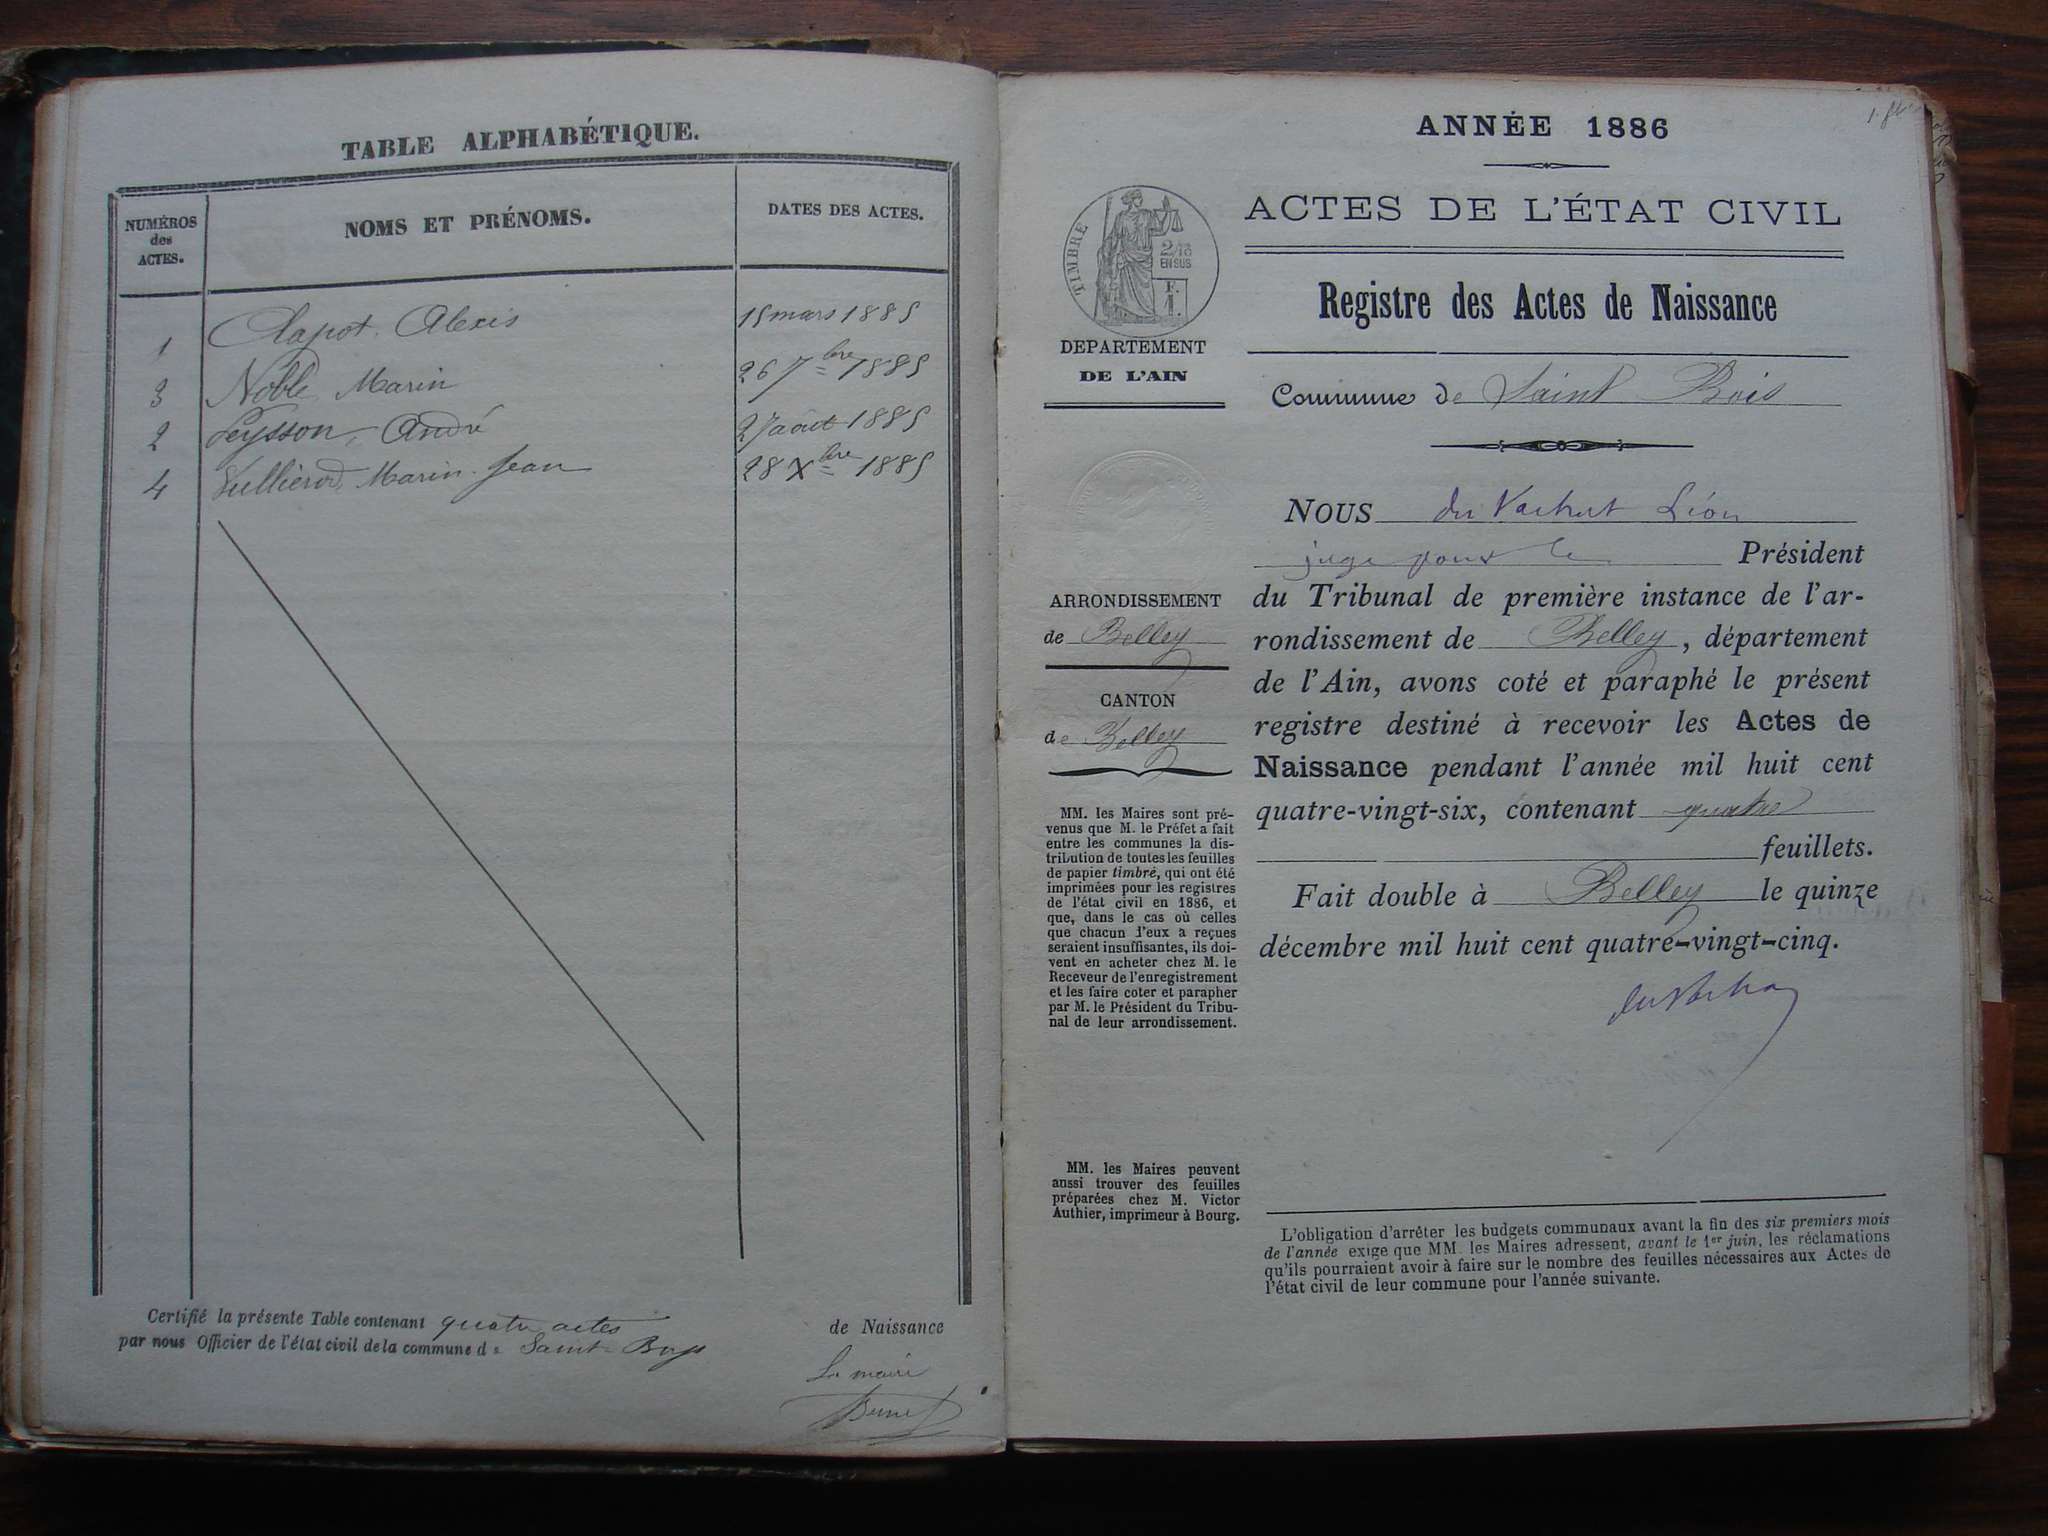 TABLE ALPHABÉTIQUE.
NUMÉROS des ACTES.
NOMS ET PRÉNOMS.
DATES DES ACTES.
1 Clapot Alexis 15 mars 1885
3 Noble, Marin 26 7bre 1885
2 Peysson, André 27 août 1885
4 Vulliérod, Marin Jean 28 Xbre 1885
Certifié la présente Table contenant quatre actes de Naissance
par nous Officier de l'état civil de la commune de Saint Bois
Le maire
ANNÉE 1886
ACTES DE L'ÉTAT CIVIL
Registre des Actes de Naissance
TIMBRE
2/10
EN SUS
DEPARTEMENT
DE L'AIN
Commune de Saint Bois
NOUS du Vachat Léon
juge pour le Président
du Tribunal de première instance de l'ar-
rondissement de Belley, département
de l'Ain, avons coté et paraphé le présent
registre destiné à recevoir les Actes de
Naissance pendant l'année mil huit cent
quatre-vingt-six, contenant quatre
feuillets.
Fait double à Belley le quinze
décembre mil huit cent quatre-vingt-cinq.
du Vachat
ARRONDISSEMENT
de Belley
CANTON
de Belley
MM. les Maires sont pré-
venus que M. le Préfet a fait
entre les communes la dis-
tribution de toutes les feuilles
de papier timbré, qui ont été
imprimées pour les registres
de l'état civil en 1886, et
que, dans le cas où celles
que chacun d'eux a reçues
seraient insuffisantes, ils doi-
vent en acheter chez M. le
Receveur de l'enregistrement
et les faire coter et parapher
par M. le Président du Tribu-
nal de leur arrondissement.
MM. les Maires peuvent
aussi trouver des feuilles
préparées chez M. Victor
Authier, imprimeur à Bourg.
L'obligation d'arrêter les budgets communaux avant la fin des six premiers mois
de l'année exige que MM. les Maires adressent, avant le 1er juin, les réclamations
qu'ils pourraient avoir à faire sur le nombre des feuilles nécessaires aux Actes de
l'état civil de leur commune pour l'année suivante.